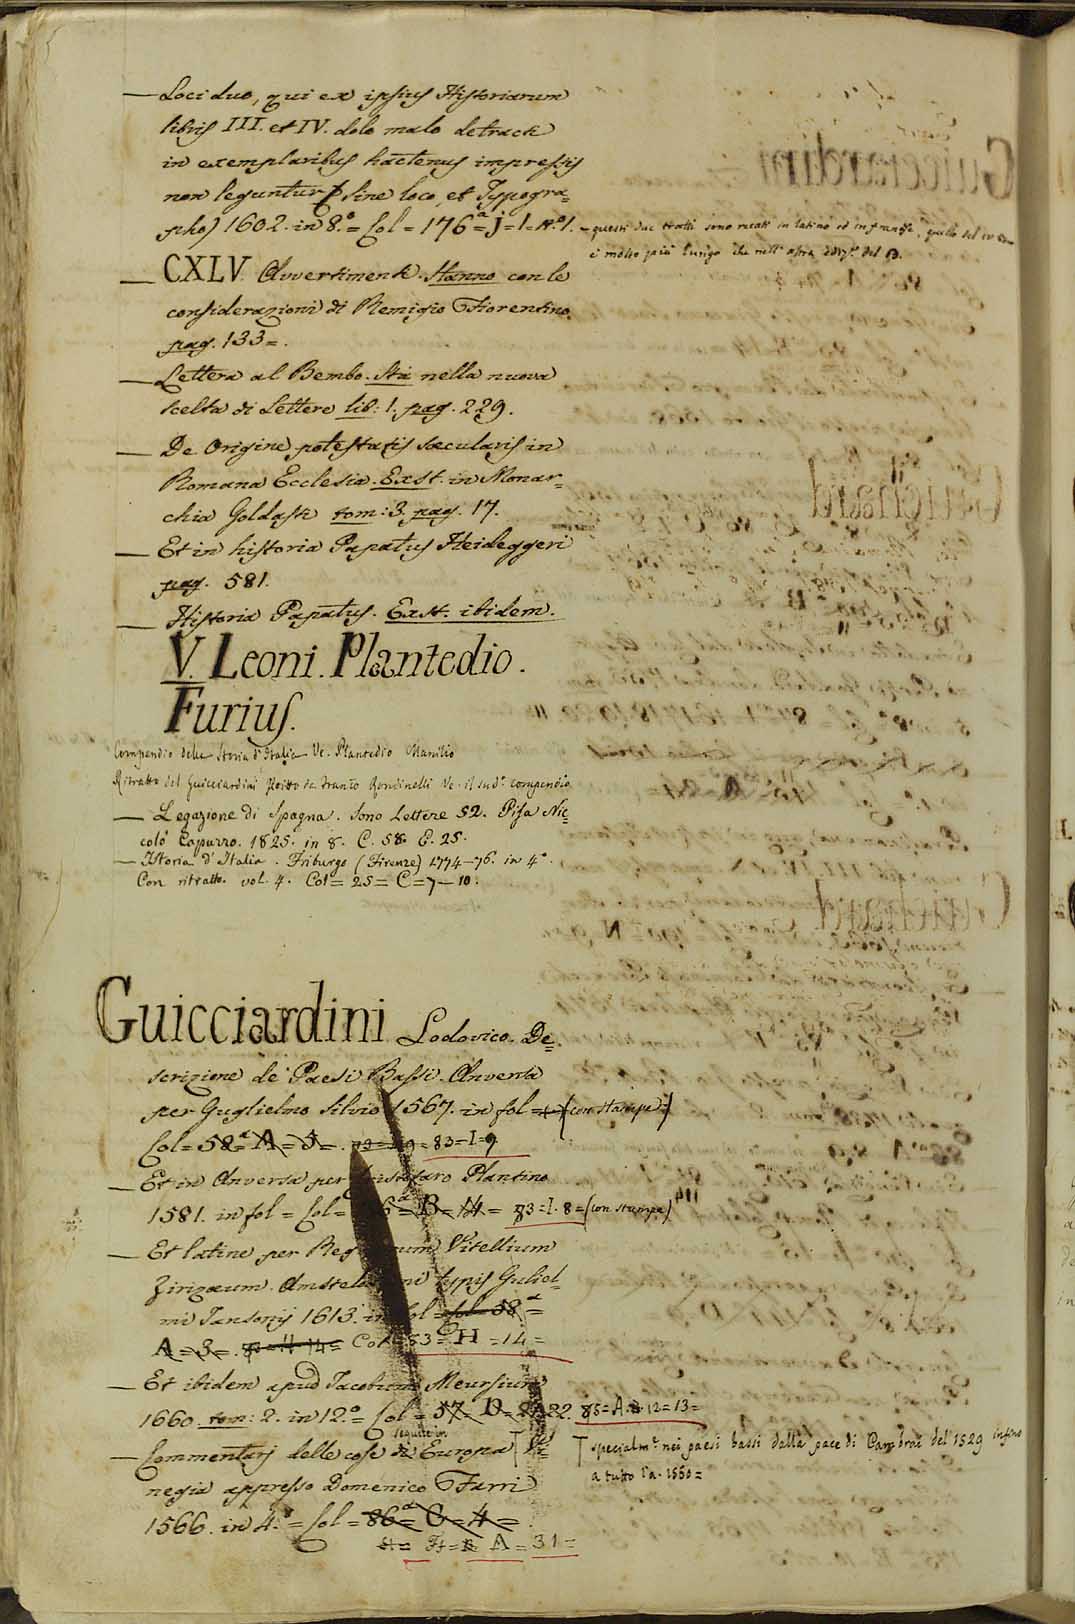 — Loci duo, qui ex ipsius Historiarum
libris III. et IV. dolo malo detracti
in exemplaribus hactenus impressis
non leguntur (sine loco, et Typogra=
pho) 1602. in 8.º = Col = 176ª = j = 1 = N.º 1. — questi due tratti sono recati in latino ed in franzese, quello del IV
è molto più lungo che nell' altra ediz.e del
— CXLV. Avvertimenti. Stanno con le
considerazioni di Remigio Fiorentino.
pag. 133 = .
— Lettera al Bembo. Sta nella nuova
scelta di Lettere lib: 1. pag. 229.
— De Origine potestatis sæcularis in
Romana Ecclesia. Exst. in Monar=
chia Goldasti tom: 3. pag. 17.
— Et in historia Papatus Heideggeri
pag. 581.
— Historia Papatus. Exst. ibidem.
V. Leoni. Plantedio.
Furius.
Compendio della Storia d'Italia Ve. Plantedio Manilio
Ritratto del Guicciardini scritto da Franco Rondinelli Ve. il sud.º compendio
— Legazione di Spagna. Sono Lettere 52. Pisa Nic=
colò Capurro. 1825. in 8. C. 58. E. 25.
— Istoria d'Italia. Friburgo (Firenze) 1774–76. in 4º.
Con ritratto. vol. 4. Col = 25 = C = 7 — 10.
Guicciardini Lodovico. De=
scrizione de' Paesi Bassi. Anversa
per Guglielmo Silvio 1567. in fol = (con stampe)
Col = 58ª = A = 5 = . = 83 = I = 9
— Et in Anversa per Cristofaro Plantino
1581. in fol = Col = = B = 4 = 83 = I. 8 = (con stampe) 114
— Et latine per Regnerum Vitellium
Zirizæum. Amstelodami typis Guliel=
mi Jansonij 1613. in fol = Col = 58ª =
A = 3 = . Col = 83 = H = 14 =
— Et ibidem apud Jacobum Meursium
1660. tom: 2. in 12.º = Col = 57 = D = 22. 85 = A = 12 = 13 =
seguite in
— Commentarj delle cose di Europa Ve= specialm.e nei paesi bassi dalla pace di Cambrai del 1529 insino
negia appresso Domenico Farri a tutto l'a. 1560 =
1566. in 4.º = Col = 86ª = C = 4 =
A = 31 =